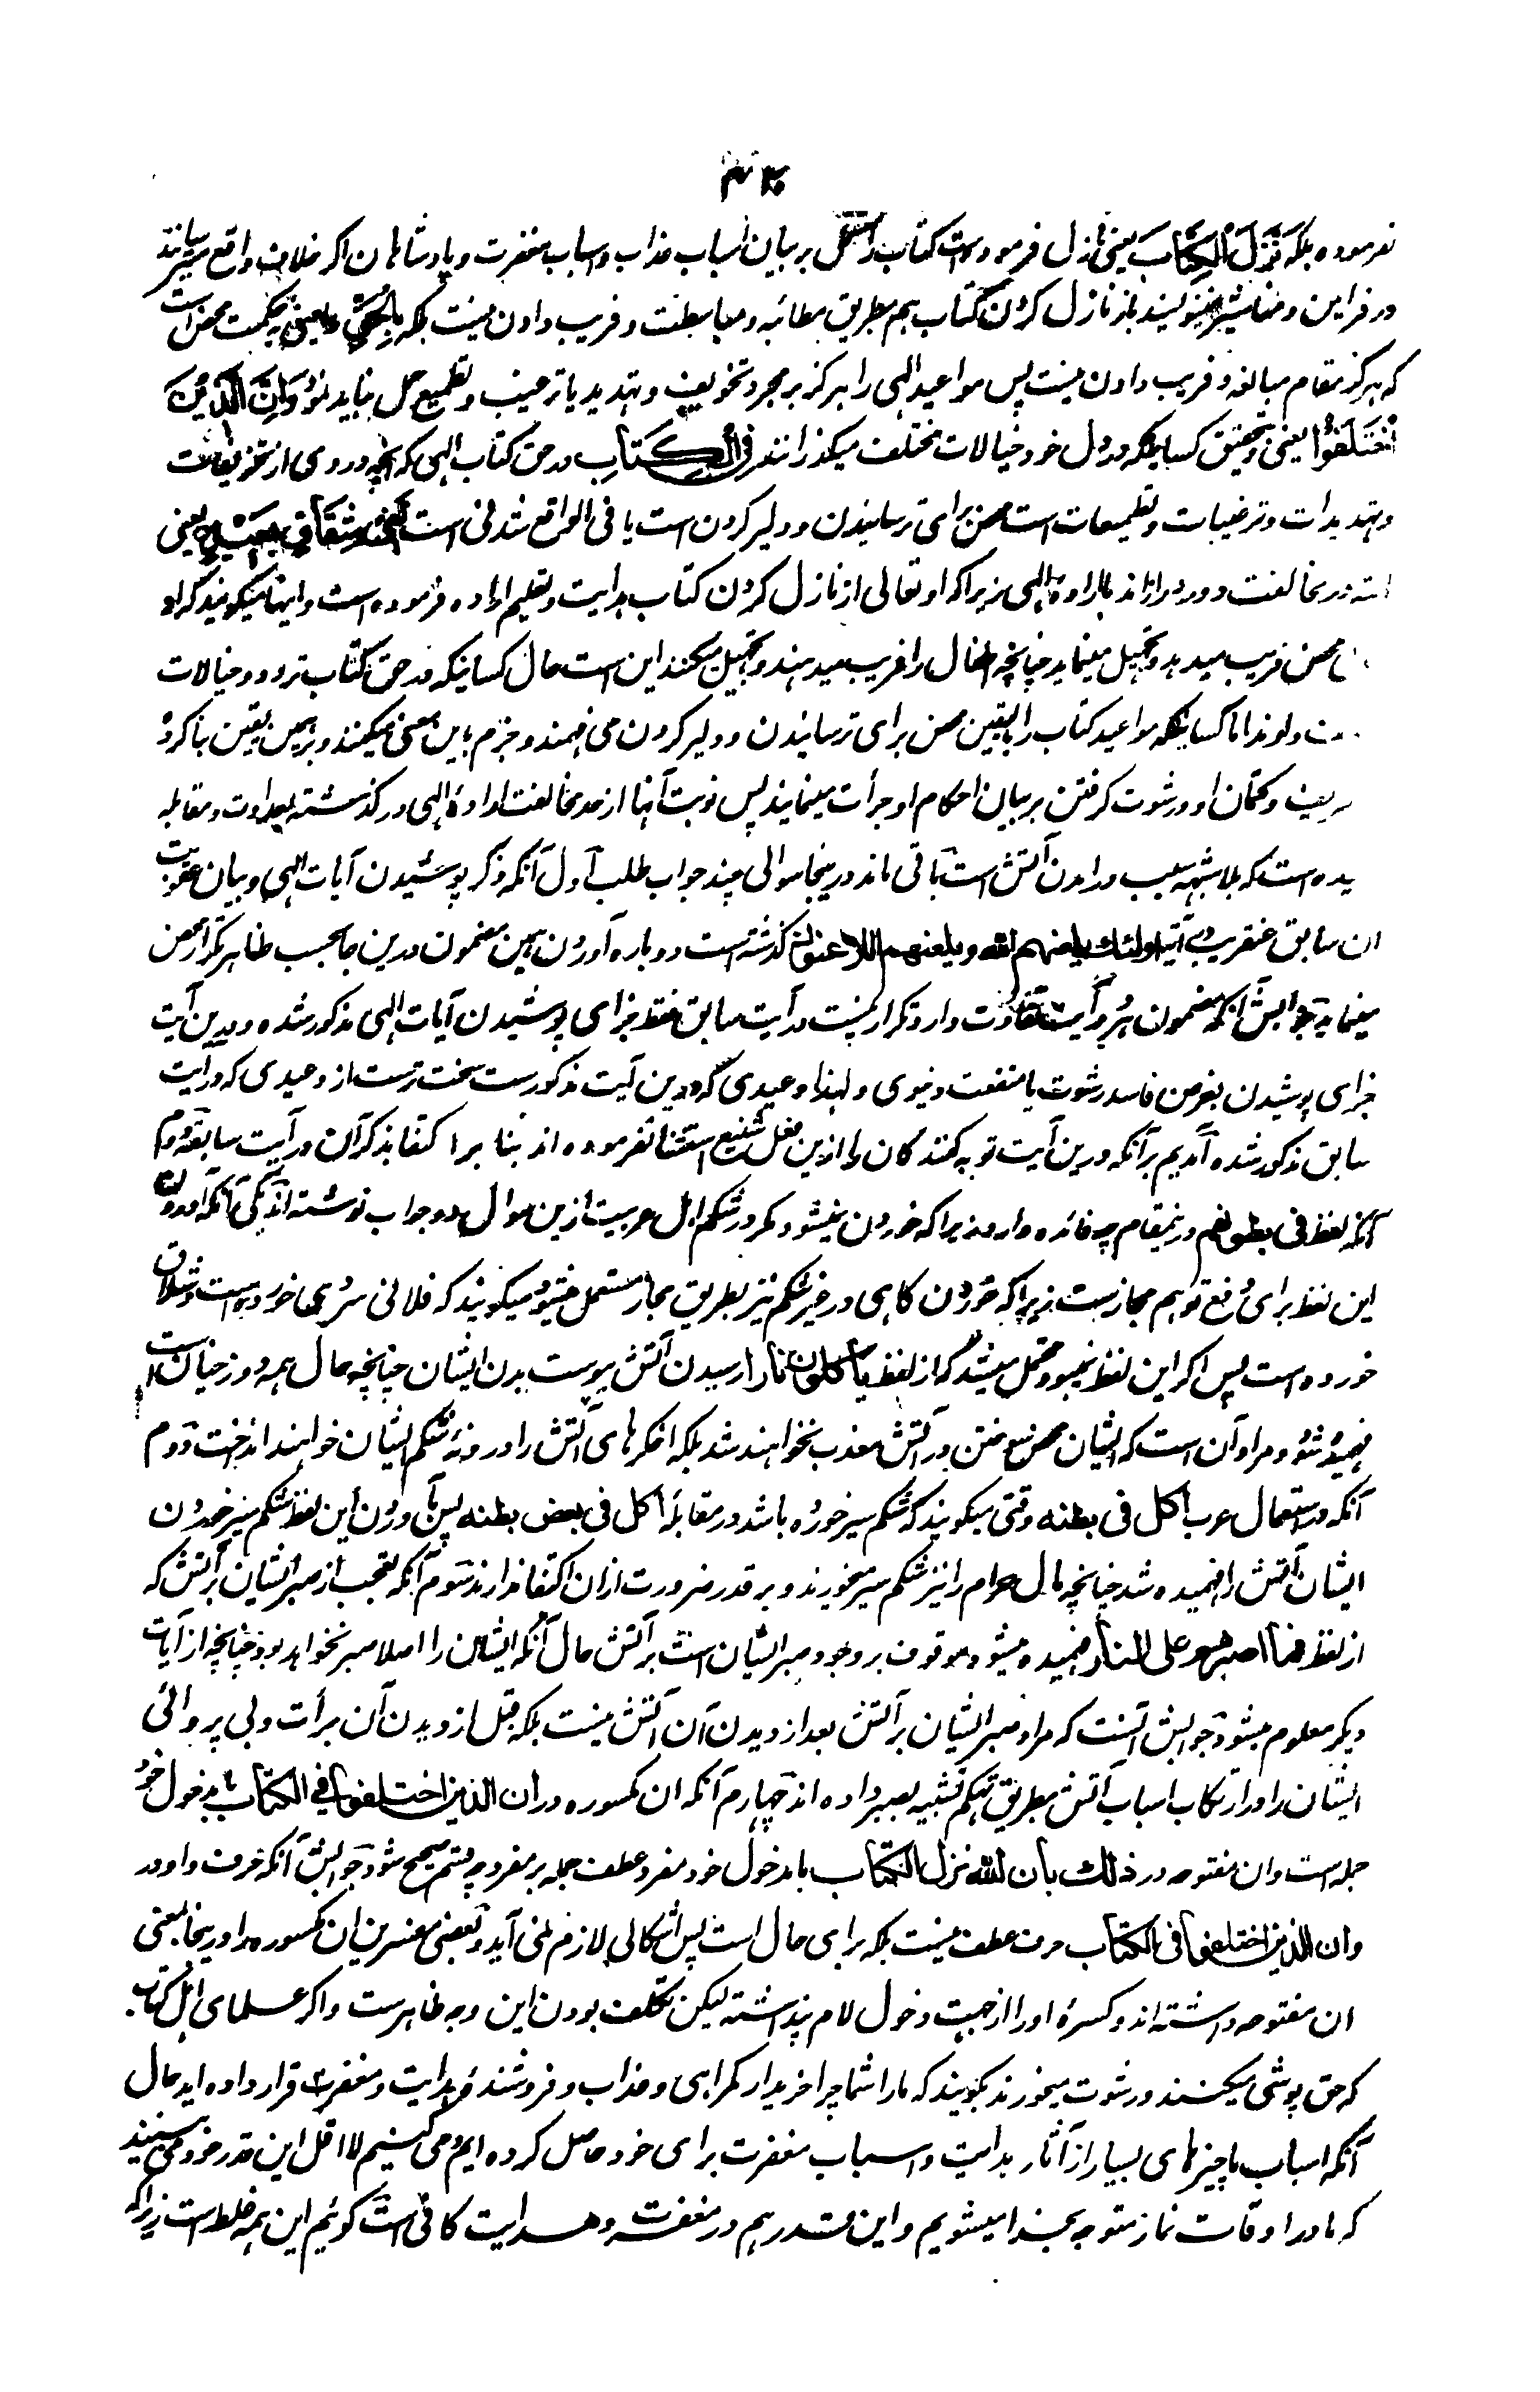 نفرموده بلکه نَزَّلَ الْکِتَابَ یعنی نازل فرموده است کتاب را مشتمل بر بیان اسباب عذاب و اسباب مغفرت و پادشاهان اگر خلاف واقع میترسانند
در فرامین و مناشیر مینویسند نازل کردن کتاب هم بطریق مطائبه و مباسطت و فریب دادن نیست بلکه بِالْحَقِّ یعنی به حکمت محض است
که هرگز مقام مبالغه و فریب دادن نیست پس مواعید الهی را هرگز بر مجرد تخویف و تهدید یا ترغیب و تطمیع حمل نباید نمود وَإِنَّ الَّذِينَ
اخْتَلَفُوا یعنی و تحقیق کسانیکه در دل خود خیالات مختلف میگذرانند فِي الْكِتَابِ در حق کتاب الهی که آنچه در وی از تخویفات
و تهدیدات و ترغیبات و تطمیعات است محض برای ترسانیدن و دلیر کردن است یا فی الواقع شدنی است لَفِي شِقَاقٍ بَعِيدٍ یعنی
در مخالفت دور دراز اند با ارادهٔ الهی زیرا که او تعالی از نازل کردن کتاب هدایت و تعلیم اراده فرموده است و اینها میگویند که او
محض فریب میدهد و تجهیل مینماید چنانچه اطفال را فریب میدهند و تجهیل میکنند این است حال کسانیکه در حق کتاب تردد و خیالات
دارند اما کسانیکه مواعید کتاب را بالیقین محض برای ترسانیدن و دلیر کردن می فهمند و جزم باین معنی میکنند و برهمین یقین بنا کرده
و کتمان او و رشوت گرفتن بر بیان احکام او جرأت مینمایند پس نوبت آنها از حد مخالفت ارادهٔ الهی در گذشته بعداوت و مقابله
است که بلا شبهه سبب در آمدن آتش است باقی ماند درینجا سوالی چند جواب طلب اول آنکه ذکر پوشیدن آیات الهی و بیان عقوبت
ان سابق عنقریب در آیه اولئك يلعنهم الله ويلعنهم اللاعنون گذشته است دوباره آوردن همین مضمون درین جا بحسب ظاهر تکرار محض
مینماید جوابش آنکه مضمون هر دو آیت تفاوت دارد تکرار نیست در آیت سابق فقط جزای پوشیدن آیات الهی مذکور شده و درین آیت
جزای پوشیدن بغرض فاسد رشوت یا منفعت دنیوی و لهذا وعیدی که درین آیت مذکورست سخت ترست از وعیدی که در آیت
سابق مذکور شده آمدیم بر آنکه درین آیت توبه کنندگان را ازین فعل شنیع استثنا نفرموده اند بنا بر اکتفا بذکر آن در آیت سابقه دوم
آنکه لفظ فی بطونهم درینمقام چه فائده دارد زیرا که خوردن نمیشود مگر در شکم اهل عربیت ازین سوال دو جواب نوشته اند یکی آنکه آوردن
این لفظ برای رفع توهم مجازست زیرا که خوردن گاهی در غیر شکم نیز بطریق مجاز مستعمل میشود میگویند که فلانی سرمها خورده است و شلاق
خورده است پس اگر این لفظ نمیبود محتمل میشد که از لفظ یاکلون نارا رسیدن آتش بپوست بدن ایشان چنانچه حال همه دوزخیان است
فهمیده شود و مراد آن است که ایشان محض بسوختن در آتش معذب نخواهند شد بلکه اخگرهای آتش را درونهٔ شکم ایشان خواهند انداخت دوم
آنکه در استعمال عرب اکل فی بطنه وقتی میگویند که شکم سیر خورده باشد در مقابلهٔ اکل فی بعض بطنه پس بآوردن این لفظ شکم سیر خوردن
ایشان آتش را فهمیده شد چنانچه مال حرام را نیز شکم سیر میخورند و بر قدر ضرورت ازان اکتفا ندارند سوم آنکه تعجب از صبر ایشان بر آتش که
از لفظ فما اصبرهم علی النار فهمیده میشود موقوف بر وجود صبر ایشان است بر آتش حال آنکه ایشان را اصلا صبر نخواهد بود چنانچه از آیات
دیگر معلوم میشود جوابش آنست که مراد صبر ایشان بر آتش بعد از دیدن آن آتش نیست بلکه قبل از دیدن آن جرأت و بی پروائی
ایشان را در ارتکاب اسباب آتش بطریق تهکم تشبیه بصبر داده اند چهارم آنکه ان مکسوره در ان الذين اختلفوا في الكتاب با مدخول خود
جمله است و ان مفتوحه در ذلك بان الله نزل الكتاب با مدخول خود مفرد عطف جمله بر مفرد چه قسم صحیح شود جوابش آنکه حرف واو در
وان الذين اختلفوا فى الكتاب حرف عطف نیست بلکه برای حال است پس اشکالی لازم نمی آید و بعضی مفسرین ان مکسوره را درینجا بمعنی
ان مفتوحه داشته اند و کسرهٔ او را از جهت دخول لام پنداشته لیکن تکلف بودن این وجه ظاهرست و اگر علمای اهل کتاب
که حق پوشی میکنند و رشوت میخورند بگویند که ما را شما چرا خریدار گمراهی و عذاب و فروشندهٔ هدایت و مغفرت قرار داده اید حال
آنکه اسباب ما چیزهای بسیار از آثار هدایت و اسباب مغفرت برای خود حاصل کرده ایم و می کنیم لا اقل این قدر خود می بینید
که ما در اوقات نماز متوجه بخدا میشویم و این قدر هم در مغفرت و هدایت کافی است گوئیم این همه غلط است زیرا که